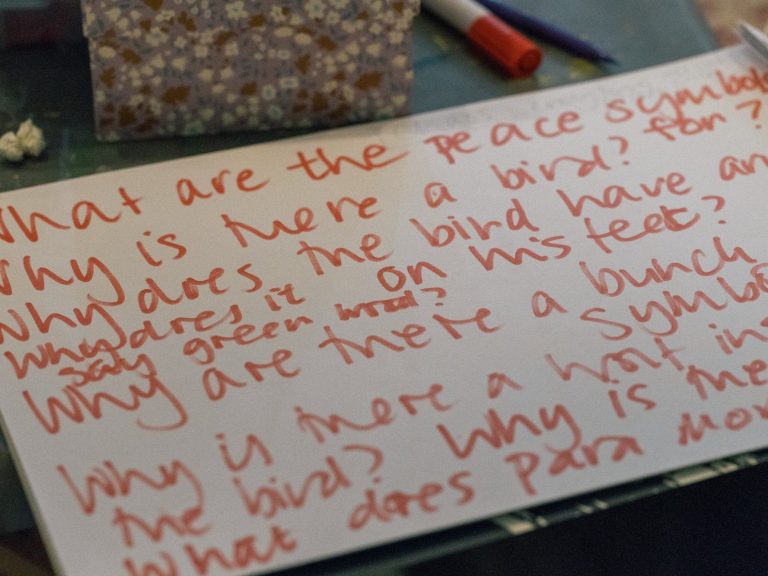 What are the peace symbols
for?
Why is there a bird?
Why does the bird have an
on his feet?
Why does it
say green wood?
Why are there a bunch
symbo
Why is there a in
the bird? Why is the
What does para mo